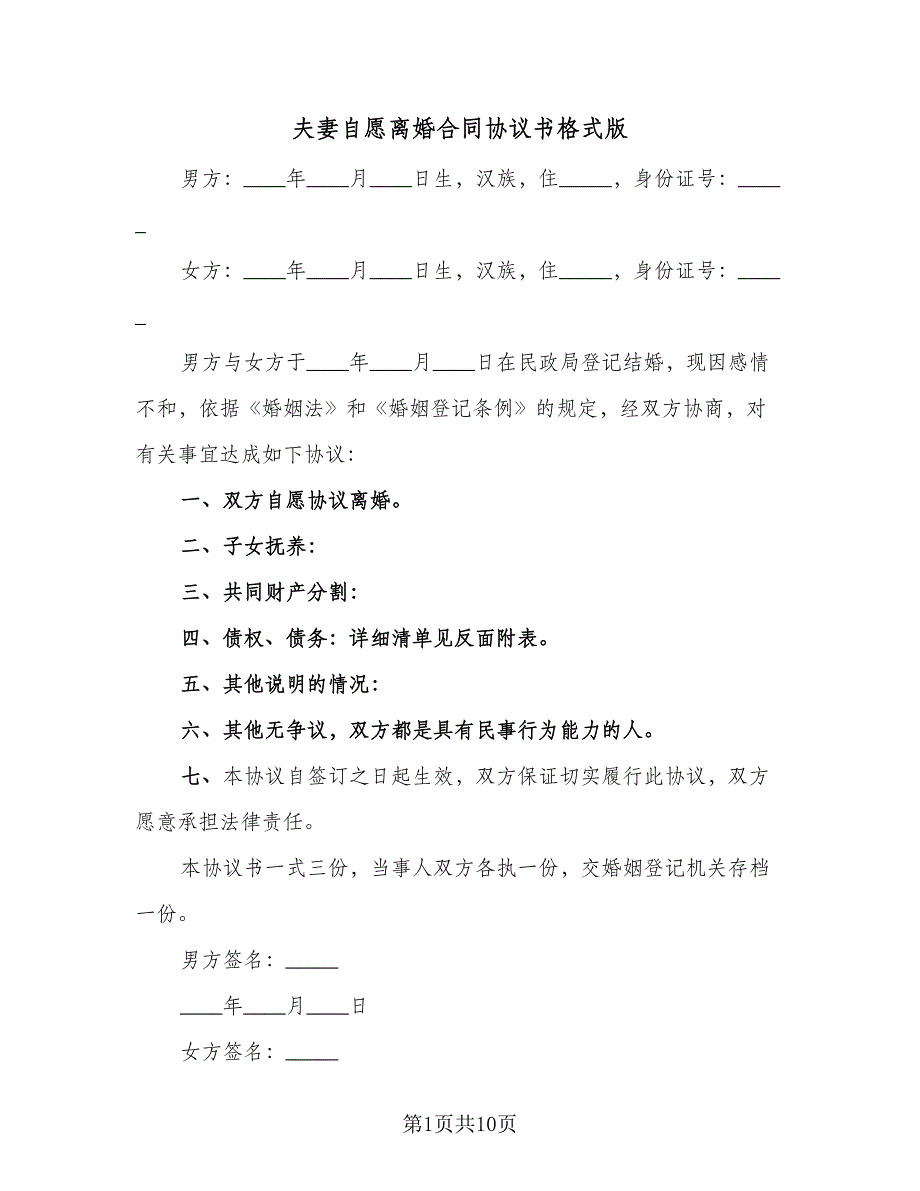 夫妻自愿离婚合同协议书格式版
男方：____年____月____日生，汉族，住_____，身份证号：____
_
女方：____年____月____日生，汉族，住_____，身份证号：____
_
男方与女方于____年____月____日在民政局登记结婚，现因感情
不和，依据《婚姻法》和《婚姻登记条例》的规定，经双方协商，对
有关事宜达成如下协议：
一、双方自愿协议离婚。
二、子女抚养：
三、共同财产分割：
四、债权、债务：详细清单见反面附表。
五、其他说明的情况：
六、其他无争议，双方都是具有民事行为能力的人。
七、本协议自签订之日起生效，双方保证切实履行此协议，双方
愿意承担法律责任。
本协议书一式三份，当事人双方各执一份，交婚姻登记机关存档
一份。
男方签名：_____
____年____月____日
女方签名：_____
第1页共10页